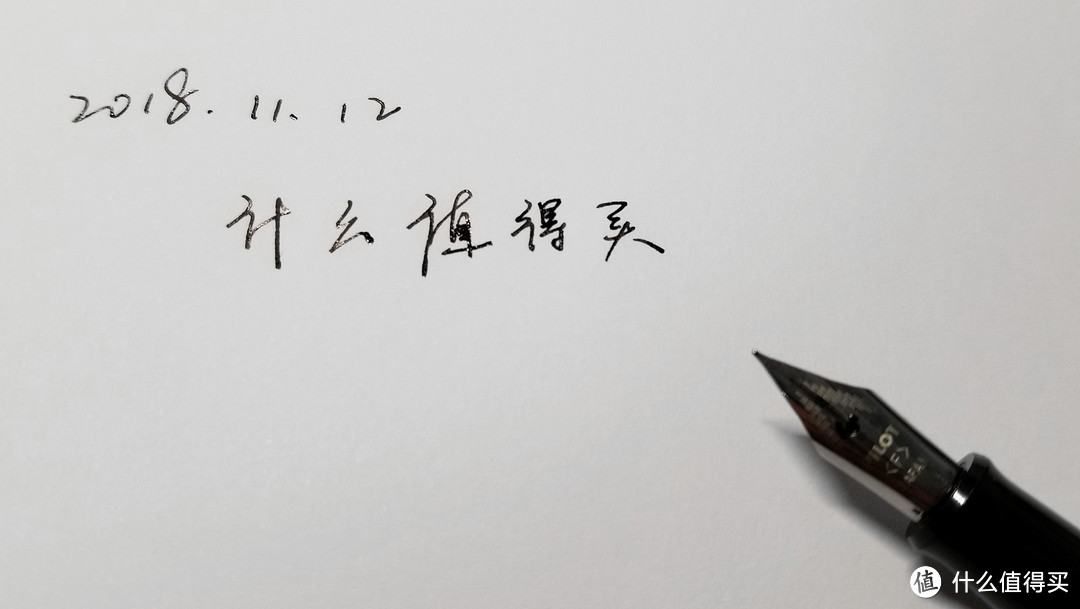 2018.11.12
什么值得买
PILOT
<F>
值 什么值得买